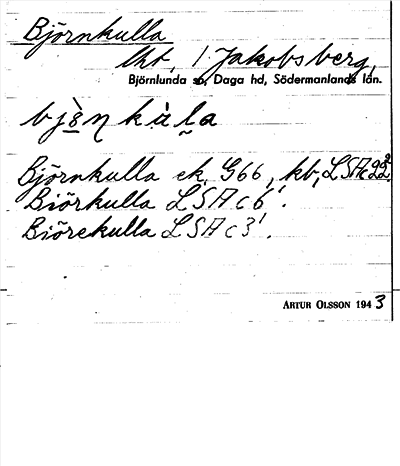 Björnkulla
lht, 1 Jakobsberg,
Björnlunda sn, Daga hd, Södermanlands län.
Björnkulla ek. G66, kb, LSAc22².
Biörkulla LSAc6'.
Biörekulla LSAc3'.
ARTUR OLSSON 1943